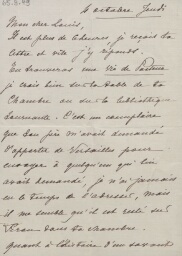 4 octobre Jeudi
Mon cher Louis,
Il est plus de 6 heures je reçois ta
lettre et vite j'y réponds.
Tu trouveras une vie de Pasteur
je crois bien sur la table de ta
chambre ou sur la bibliothèque
tournante. C'est un exemplaire
que ton père m'avait demandé
d'apporter de Versailles pour
envoyer à quelqu'un qui l'en
avait demandé, je n'ai jamais
eu le temps de l'adresser, mais
il me semble qu'il est resté sur
dans ta chambre.
quant à l'histoire d'un savant